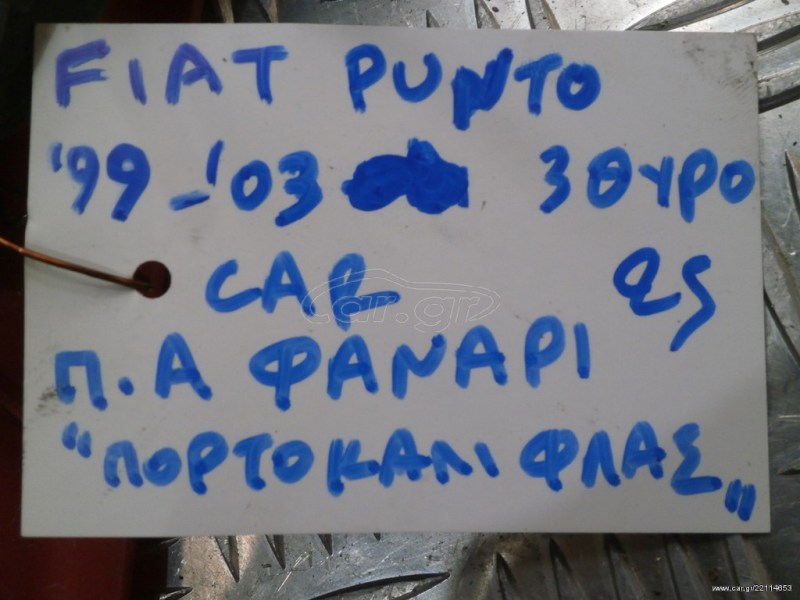 FIAT PUNTO
'99-'03 3ΘΥΡΟ
CAR 25
car.gr
Π.Α ΦΑΝΑΡΙ
"ΠΟΡΤΟΚΑΛΙ ΦΛΑΣ"
www.car.gr/22114653